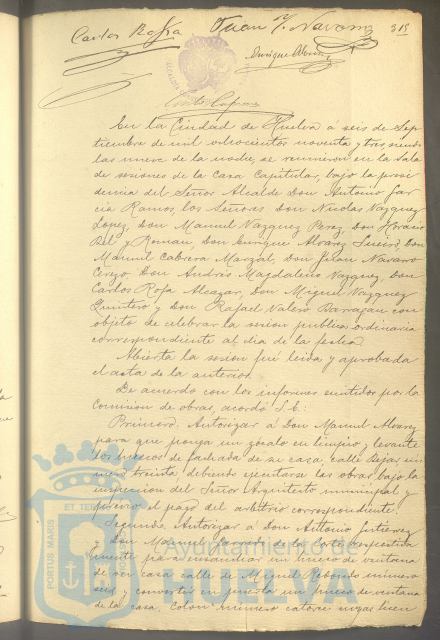 Carlos Rofa Juan J. Navarro 315
Enrique Alvarez
En la Ciudad de Huelva á seis de Sep-
tiembre de mil ochocientos noventa y tres siendo
las nueve de la noche, se reunieron en la Sala
de sesiones de la Casa Capitular, bajo la presi-
dencia del Señor Alcalde Don Antonio Gar-
cia Ramos, los Señores Don Nicolas Vazquez
Lopez, Don Manuel Vazquez Perez, Don Horacio
Bel y Roman, Don Enrique Alvarez Don
Manuel Cabrera Don Navarro
Cerezo, Don Andrés Magdaleno Vazquez, Don
Carlos Rofa Alcazar, Don Miguel Vazquez
Quintero y Don Rafael Valero Barragan con
objeto de celebrar la sesion publica ordinaria
correspondiente al dia de la fecha.
Abierta la sesion fué leida y aprobada
el acta de la anterior.
De acuerdo con los informes emitidos por la
Comision de obras, acordó S.E.:
Primero. Autorizar á Don Manuel Alvarez
para que ponga un zócalo en limpio, y levante
los huecos de fachada de su casa, calle Bejar nú-
mero treinta, debiendo ejecutarse las obras bajo la
inspeccion del Señor Arquitecto municipal y
previo el pago del arbitrio correspondiente.
Segundo. Autorizar á Don Antonio Gutierrez
y Don Manuel de la Corte respectiva-
mente para ensanchar un hueco de ventana
de su casa calle de Miguel Redondo número
seis y convertir en puerta un hueco de ventana
de la casa, Colon número catorce
PORTUS MARIS ET TERRAE
Ayuntamiento de
HUELVA